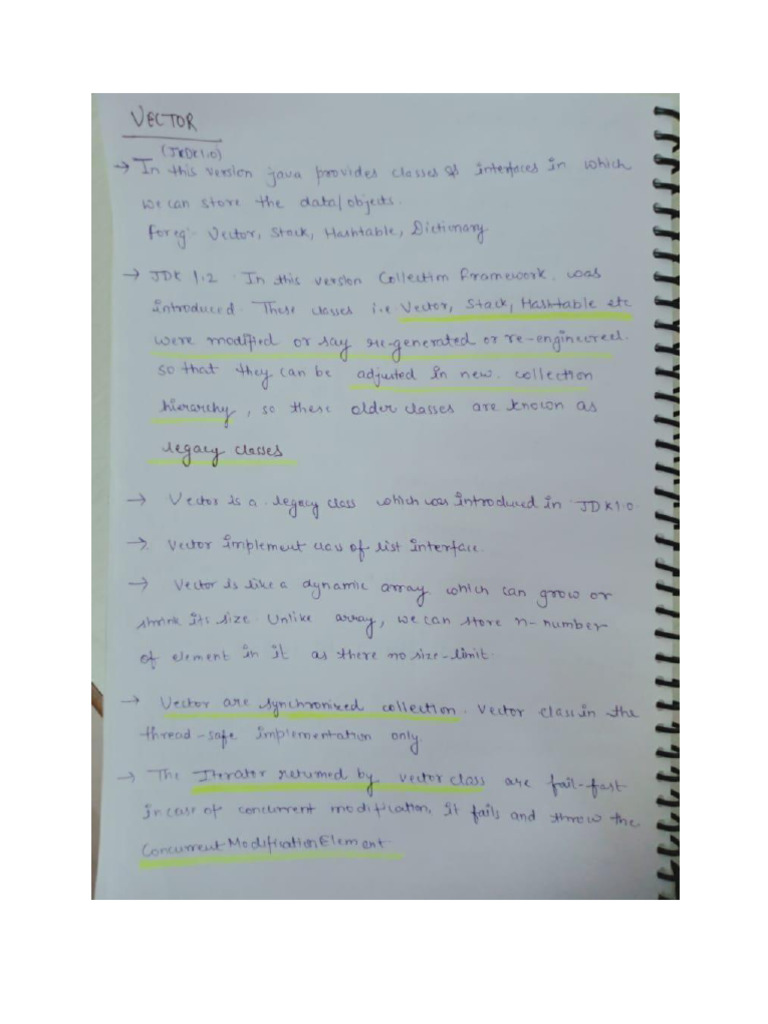 VECTOR
(JKDK1.0)
→ In this version java provides classes & interfaces in which
we can store the data/objects.
For eg:- Vector, Stack, Hashtable, Dictionary
→ JDK 1.2 In this version Collection framework. was
introduced. These classes i.e. Vector, Stack, Hashtable etc
were modified or say re-generated or re-engineered.
so that they can be adjusted in new. collection
hierarchy, so these older classes are known as
legacy classes
→ Vector is a legacy class which was introduced in JDK1.0
→ Vector implement class of list interface.
→ Vector is like a dynamic array which can grow or
shrink its size. Unlike array, we can store n-number
of element in it as there no size-limit.
→ Vector are synchronized collection. Vector class in the
thread-safe implementation only.
→ The Iterator returned by vector class are fail-fast
in case of concurrent modification, it fails and throw the
ConcurrentModificationElement